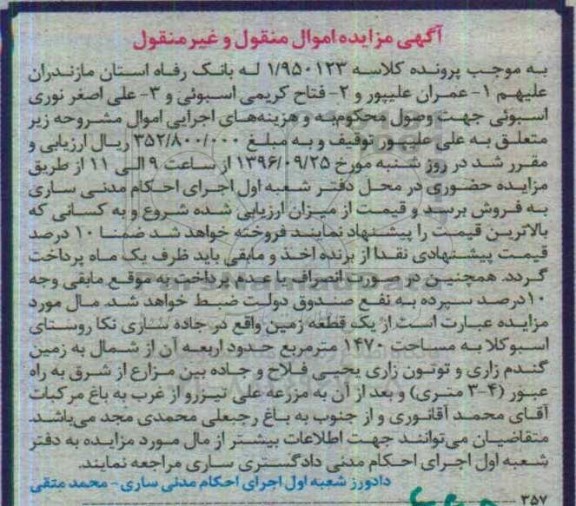 آگهی مزایده اموال منقول و غیر منقول
به موجب پرونده کلاسه ۱/۹۵۰۱۲۳ له بانک رفاه استان مازندران
علیهم ۱- عمران علیپور و ۲- فتاح کریمی اسبوئی و ۳- علی اصغر نوری
اسبوئی جهت وصول محکوم‌به و هزینه‌های اجرایی اموال مشروحه زیر
متعلق به علی علیپور توقیف و به مبلغ ۳۵۲/۸۰۰/۰۰۰ ریال ارزیابی و
مقرر شد در روز شنبه مورخ ۱۳۹۶/۰۹/۲۵ از ساعت ۹ الی ۱۱ از طریق
مزایده حضوری در محل دفتر شعبه اول اجرای احکام مدنی ساری
به فروش برسد و قیمت از میزان ارزیابی شده شروع و به کسانی که
بالاترین قیمت را پیشنهاد نمایند فروخته خواهد شد ضمنا ۱۰ درصد
قیمت پیشنهادی نقدا از برنده اخذ و مابقی باید ظرف یک ماه پرداخت
گردد. همچنین در صورت انصراف یا عدم پرداخت به موقع مابقی وجه
۱۰درصد سپرده به نفع صندوق دولت ضبط خواهد شد. مال مورد
مزایده عبارت است از یک قطعه زمین واقع در جاده ساری نکا روستای
اسبوکلا به مساحت ۱۴۷۰ مترمربع حدود اربعه آن از شمال به زمین
گندم زاری و توتون زاری یحیی فلاح و جاده بین مزارع از شرق به راه
عبور (۴-۳ متری) و بعد از آن به مزرعه علی نیزرو از غرب به باغ مرکبات
آقای محمد آقانوری و از جنوب به باغ رجبعلی محمدی مجد می‌باشد.
متقاضیان می‌توانند جهت اطلاعات بیشتر از مال مورد مزایده به دفتر
شعبه اول اجرای احکام مدنی دادگستری ساری مراجعه نمایند.
دادورز شعبه اول اجرای احکام مدنی ساری- محمد متقی
۳۵۷